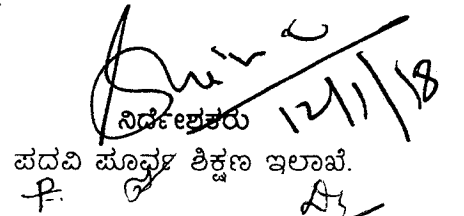 12/1/18
ನಿರ್ದೇಶಕರು
ಪದವಿ ಪೂರ್ವ ಶಿಕ್ಷಣ ಇಲಾಖೆ.